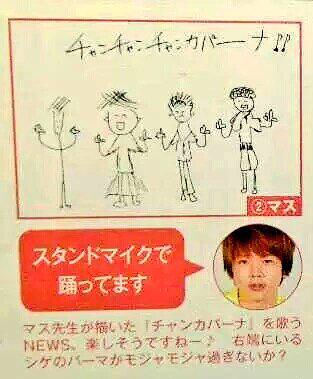 チャンチャンチャンカパーナ♪♪
②マス
スタンドマイクで
踊ってます
マス先生が描いた「チャンカパーナ」を歌う
NEWS。楽しそうですねー♪　右端にいる
シゲのパーマがモジャモジャ過ぎないか？